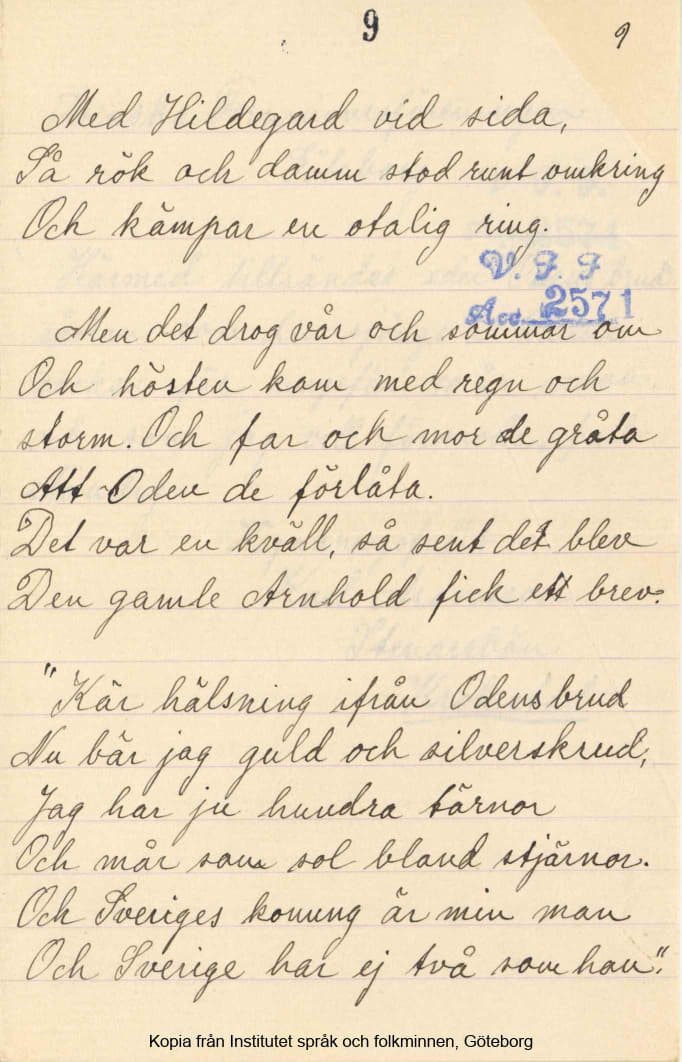 9
9
Med Hildegard vid sida,
Så rök och damm stod runt omkring
Och kämpar en otalig ring.
V. F. F
Acc 2571
Men det drog vår och sommar om
Och hösten kom med regn och
storm. Och far och mor de gråta
Att Oden de förlåta.
Det var en kväll, så sent det blev
Den gamle Arnhold fick ett brev:
"Kär hälsning ifrån Odens brud
Nu bär jag guld och silverskrud,
Jag har ju hundra tärnor
Och mår som sol bland stjärnor.
Och Sveriges konung är min man
Och Sverige har ej två som han".
Kopia från Institutet språk och folkminnen, Göteborg